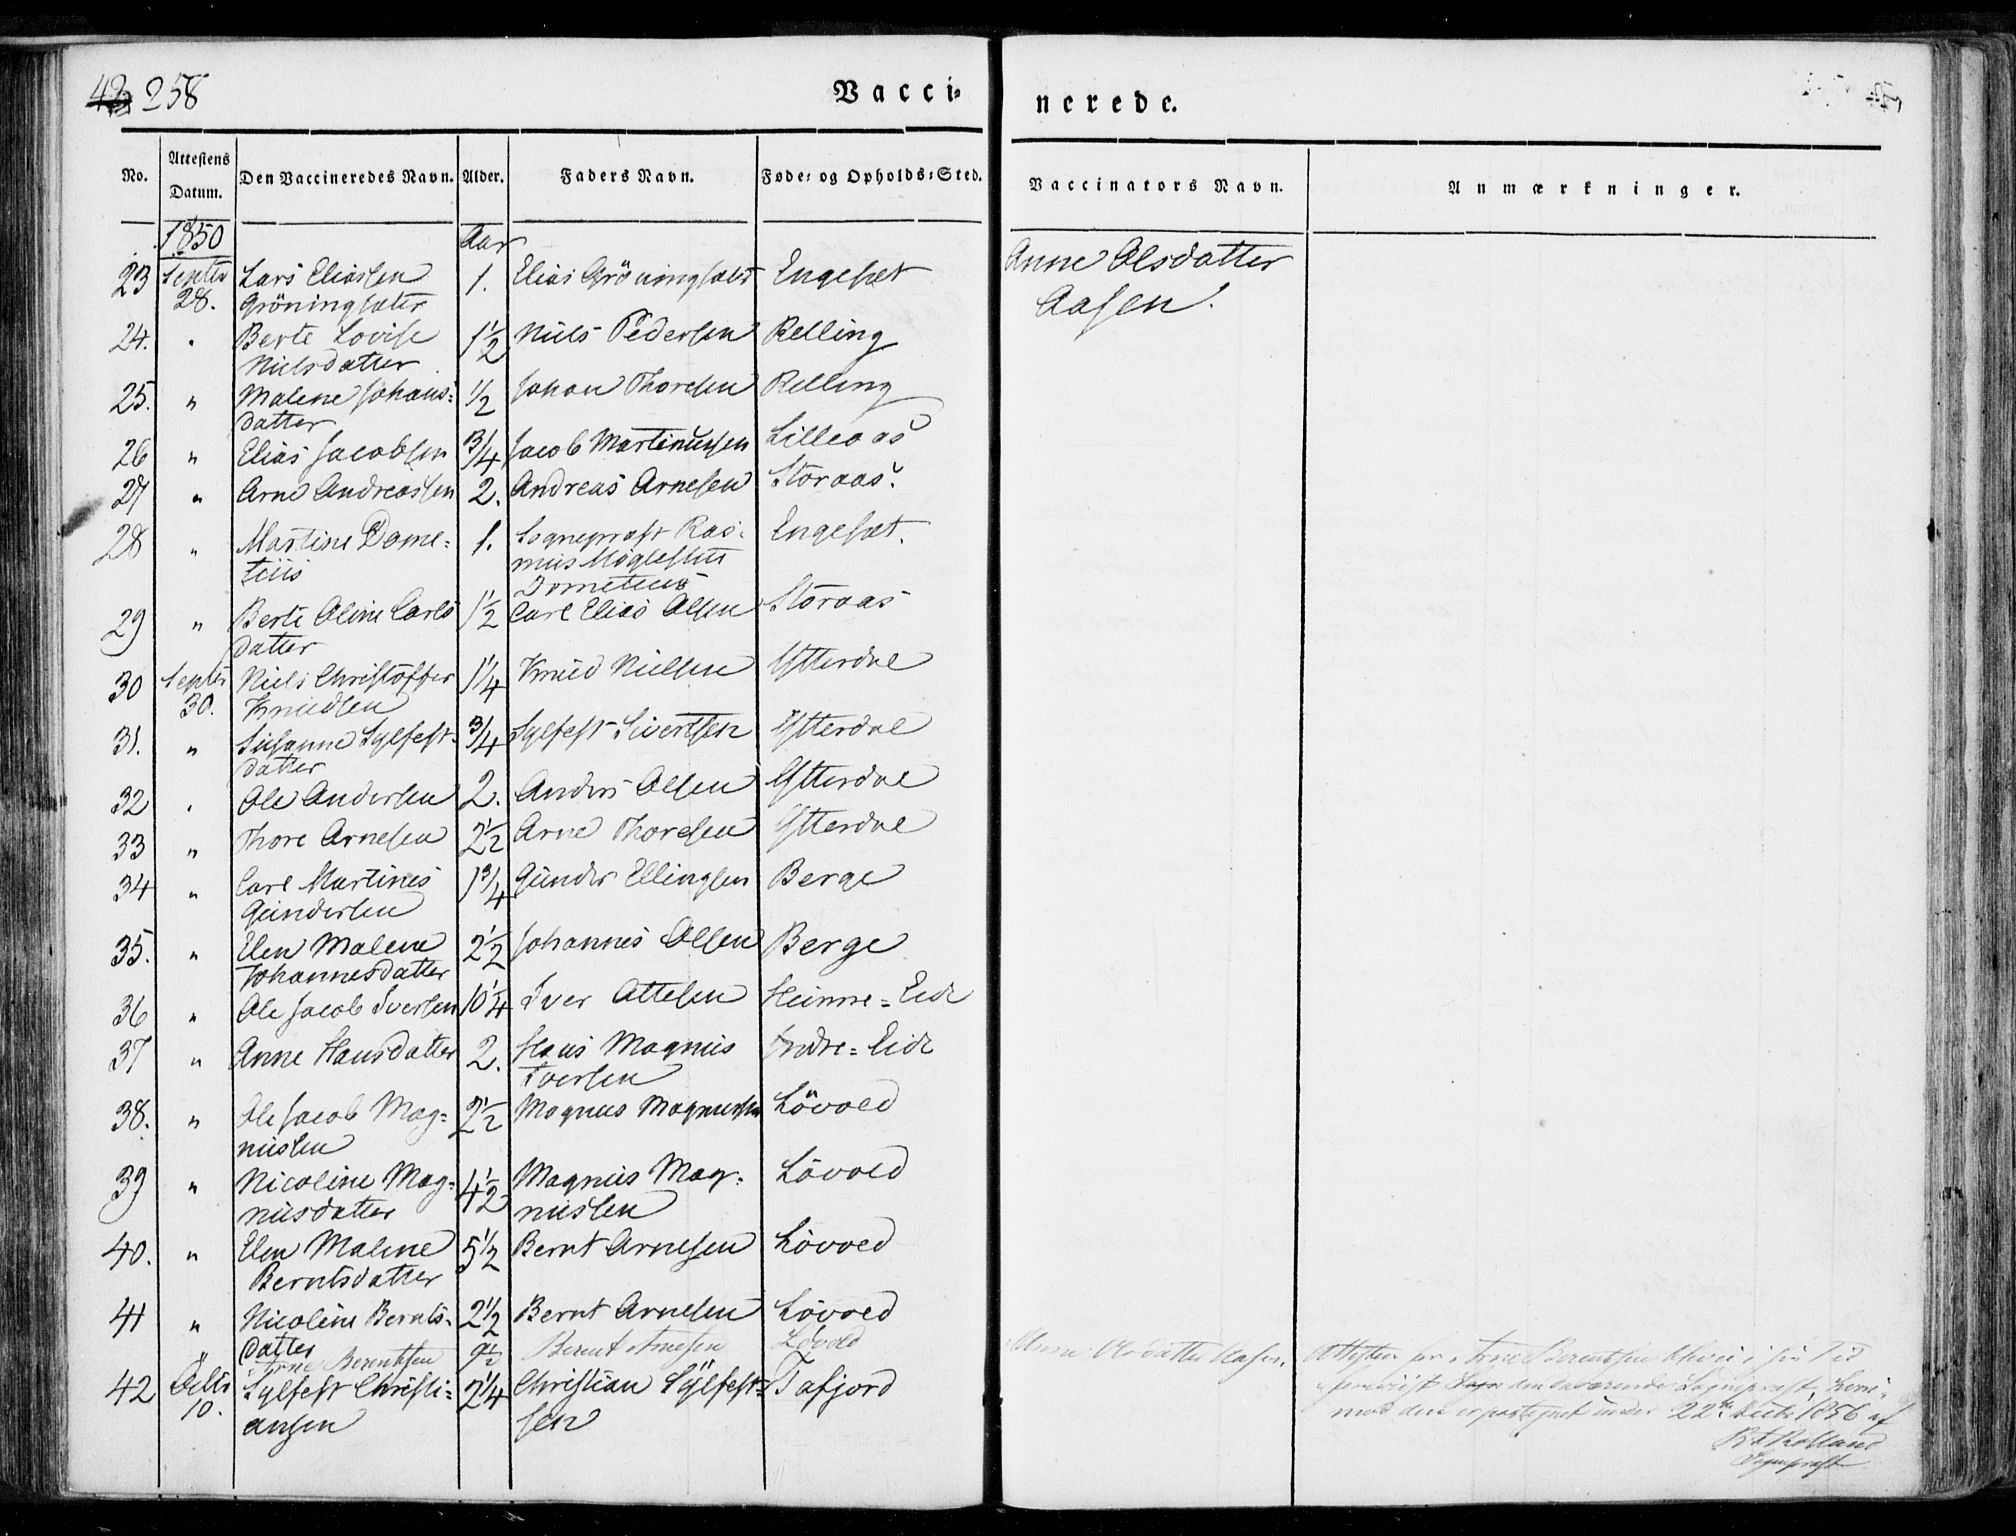 42 258
Vacci-
nerede.
No. Attestens Datum. Den Vaccineredes Navn. Alder. Faders Navn. Føde- og Opholds-Sted. Vaccinators Navn. Anmærkninger.
1850 Aar
23 Septbr 28. Lars Eliassen Gröningsæter 1. Elias Gröningsæter Engeset Anne Olsdatter Aasen.
24. " Berte Lovise Nielsdatter 1 1/2 Niels Pedersen Relling
25. " Malene Johans-datter 1/2 Johan Thoresen Relling
26 " Elias Jacobsen 3/4 Jacob Martinussen Lilleaas
27 " Arne Andreassen 2. Andreas Arnesen Storaas.
28 " Martine Dome-tius 1. Sogneprest Ras-mus Dometicus Engeset.
29 " Berte Oline Carls datter 1 1/2 Carl Elias Olsen Storaas
30 Septbr 30. Niels Christoffer Knudsen 1 1/4 Knud Nielsen Ytterdal
31. " Susanne Sylfest-datter 3/4 Sylfest Sivertsen Ytterdal
32 " Ole Andersen 2. Anders Olsen Ytterdal
33 " Thore Arnesen 2 1/2 Arne Thoresen Ytterdal
34 " Carl Martines Gundersen 1 3/4 Gunder Ellingsen Berge
35. " Elen Malene Johannesdatter 2 1/2 Johannes Olsen Berge
36 " Ole Jacob Iversen 10 1/4 Iver Attesen Heime-Eide
37 " Anne Hansdatter 2. Hans Magnus Iversen Indre-Eide
38. " Ole Jacob Mag-nussen 2 1/2 Magnus Magnussen Lövold
39 " Nicoline Mag-nusdatter 4 1/2 Magnus Mag-nussen Lövold
40. " Elen Malene Berntsdatter 5 1/2 Bernt Arnesen Lövold
41 " Nicoline Bernts-datter 2 1/2 Bernt Arnesen Lövold
" Arne Berentsen 9 1/2 Berent Arnesen Lövold Anne Olsdatter Aasen. Attesten for Arne Berentsen blevet i sin Tid
foreviist den daværende Sognepræst,
mod den er paategnet under 22de 1856 af
Rolland
Sognepræst
42 Octbr 10. Sylfest Christi-ansen 2 1/4 Christian Sylfest-sen Tafjord